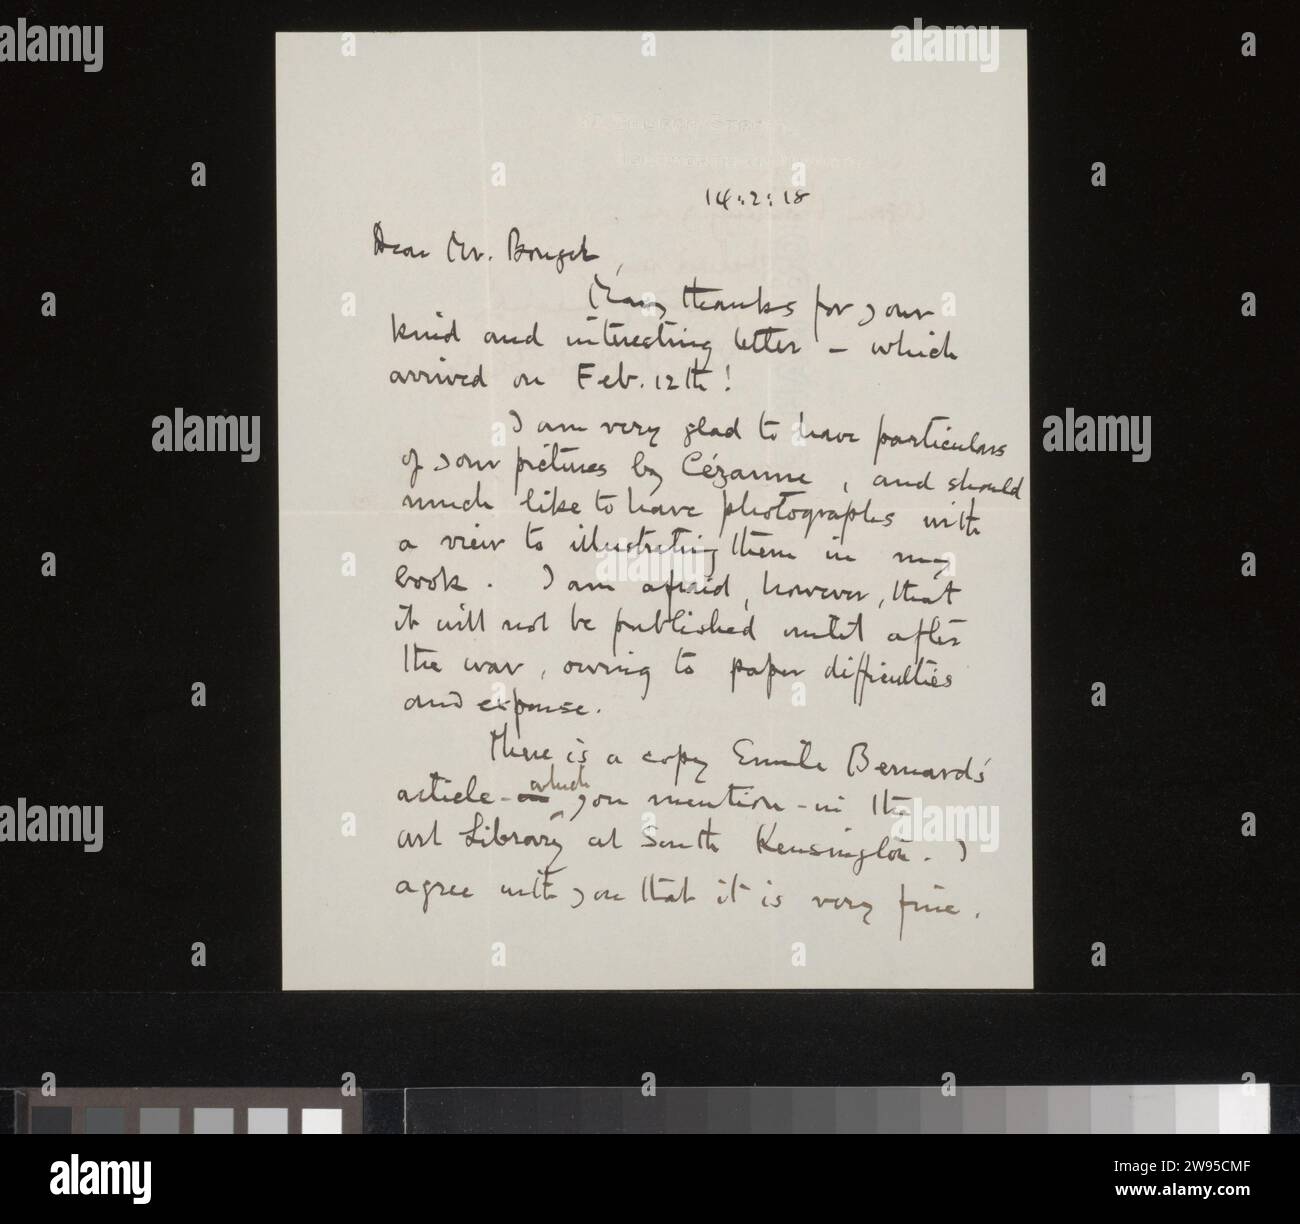 14:2:18
Dear Mr.
Many thanks for your
kind and interesting letter – which
arrived on Feb. 12th!
I am very glad to have particulars
of your pictures by Cézanne, and should
much like to have photographs with
a view to illustrating them in my
book. I am afraid, however, that
it will not be published until after
the war, owing to paper difficulties
and expense.
There is a copy Emile Bernard's
which
article – you mention – in the
art Library at South Kensington. I
agree with you that it is very fine.
alamy
www.alamy.com
Image ID: 2W95CMF